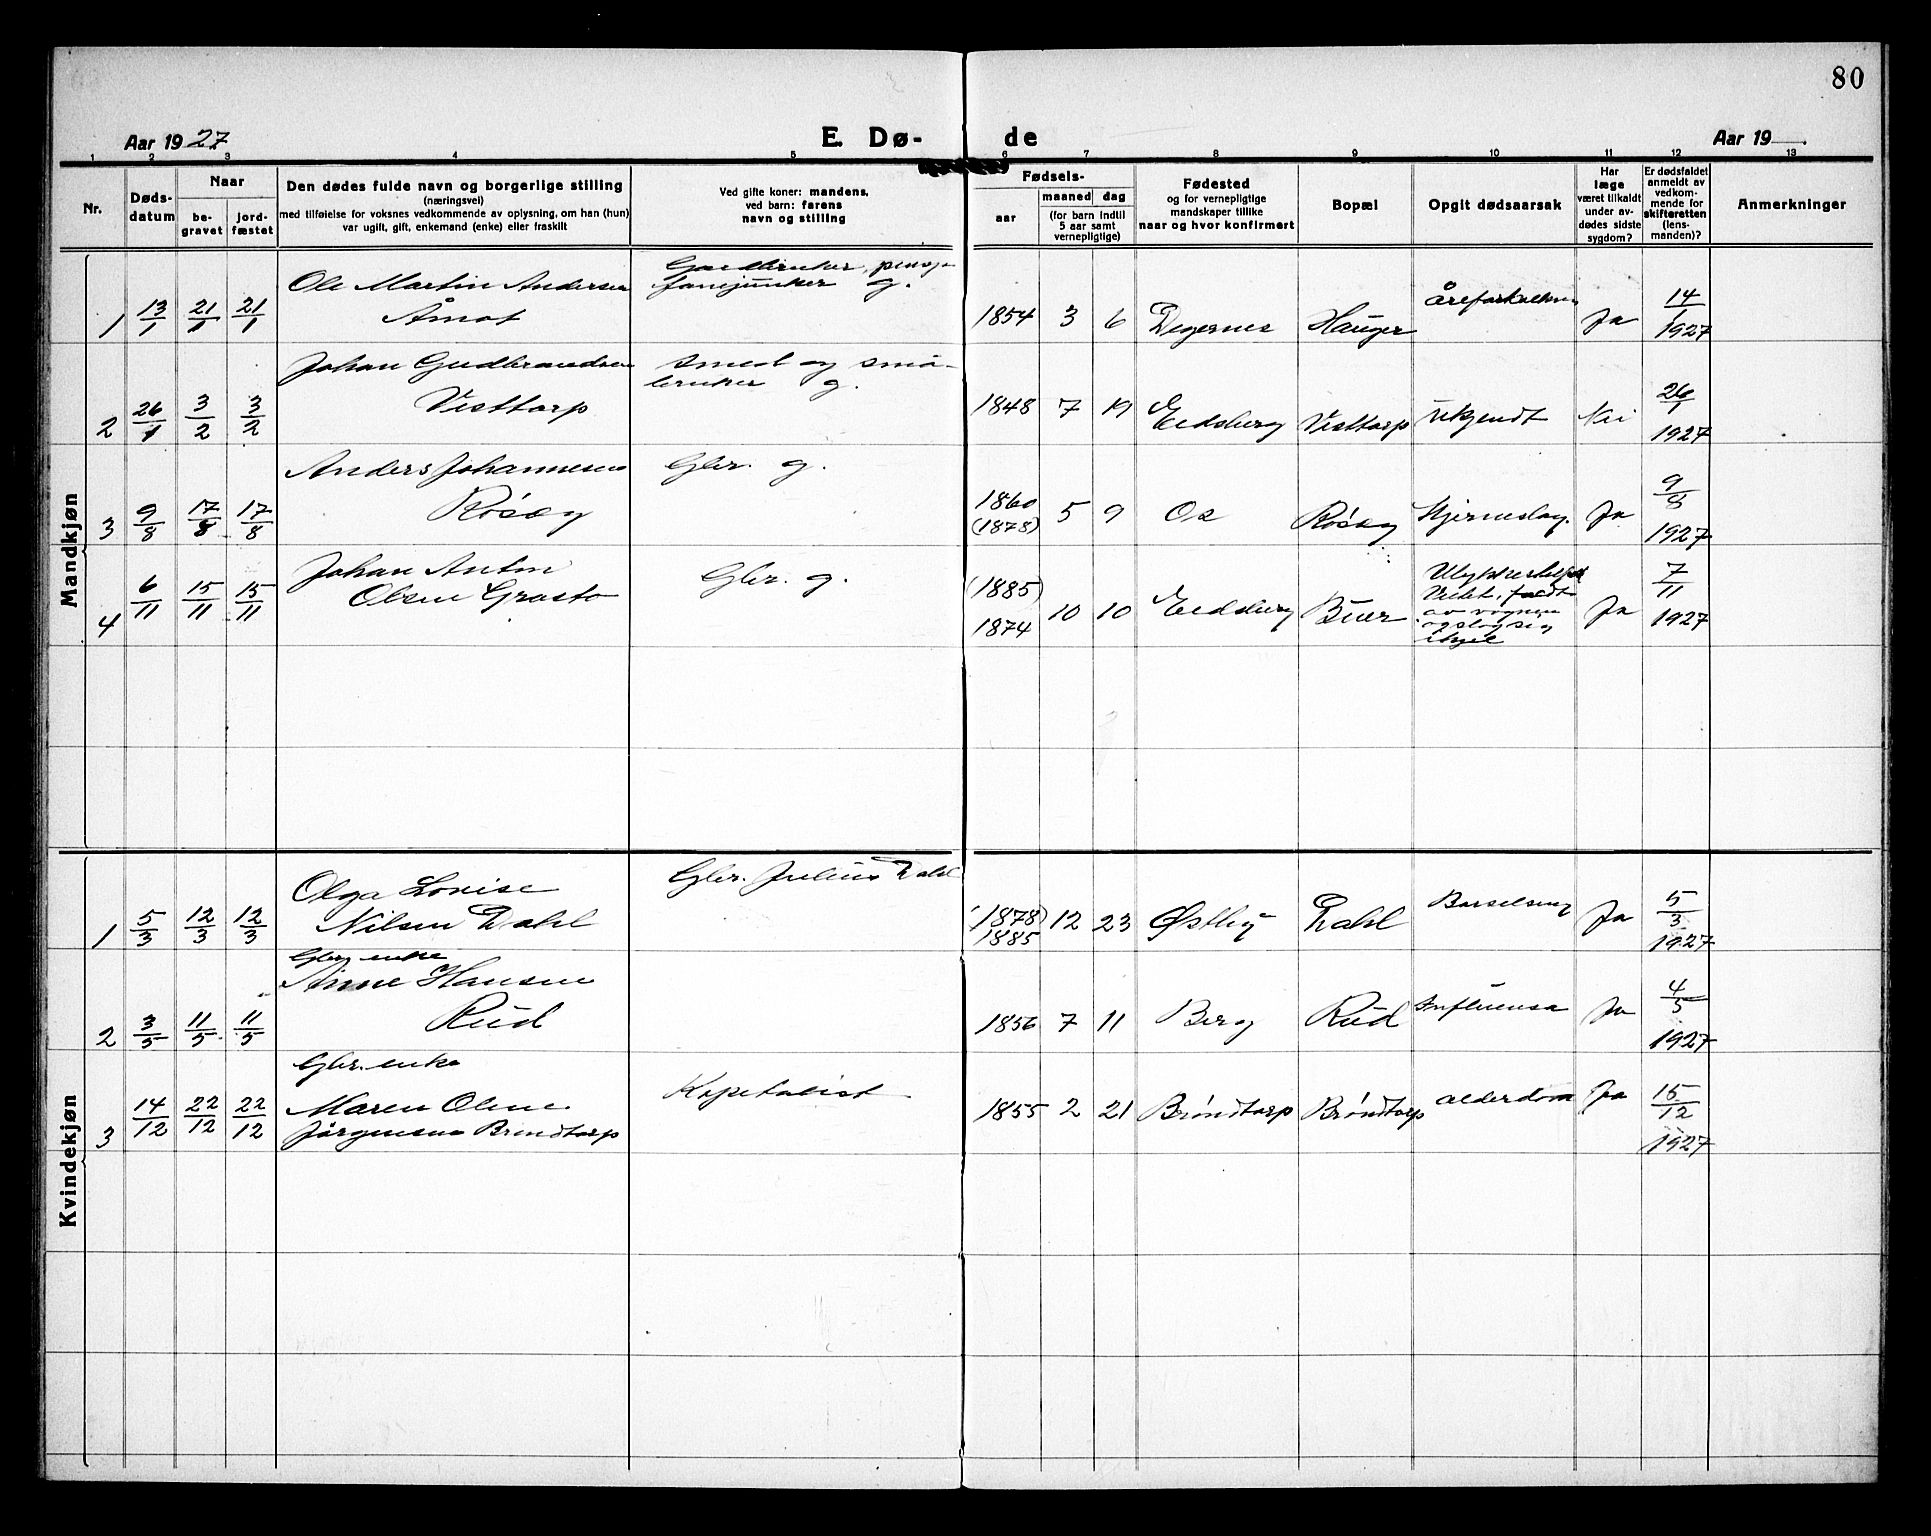 80
Aar 1927
E. Dø-
de
Aar 19
1 2 3 4 5 6 7 8 9 10 11 12 13
Nr.
Døds-
datum
Naar
be-
gravet
jord-
fæstet
Den dødes fulde navn og borgerlige stilling
(næringsvei)
med tilføielse for voksnes vedkommende av oplysning, om han (hun)
var ugift, gift, enkemand (enke) eller fraskilt
Ved gifte koner: mandens,
ved barn: farens
navn og stilling
Fødsels-
aar
maaned dag
(for barn indtil
5 aar samt
vernepligtige)
Fødested
og for vernepligtige
mandskaper tillike
naar og hvor konfirmert
Bopæl
Opgit dødsaarsak
Har
læge
været tilkaldt
under av-
dødes sidste
sygdom?
Er dødsfaldet
anmeldt av
vedkom-
mende for
skifteretten
(lens-
manden)?
Anmerkninger
Mandkjøn
1 13/1 21/1 21/1 Ole Martin Andersen
Åmot
Gaardbruker, pensj.
fanejunker g.
1854 3 6 Degernes Hauger Åreforkalkning Ja 14/1
1927
2 26/1 3/2 3/2 Johan Gudbrandsen
Visttorp
Smed og små-
bruker g.
1848 7 19 Eidsberg Visttorp Ukjendt Nei 26/1
1927
3 9/8 17/8 17/8 Anders Johannesen
Rösæg
Gbr. g.
1860
(1878) 5 9 Os Rösæg Hjerneslag. Ja 9/8
1927
4 6/11 15/11 15/11 Johan Anton
Olsen Grasto
Gbr. g.
(1885)
1874 10 10 Eidsberg Buer Ulykkestilfæld
Veltet, faldt
av vognen
og slog sig
ihjel Ja 7/11
1927
Kvindekjøn
1 5/3 12/3 12/3 Olga Lovise
Nilsen Dahl
Gbr. Julius Dahl
(1878)
1885 12 23 Østby Dahl Barselseng Ja 5/3
1927
2 3/5 11/5 11/5 Gbr. enke
Anne Hansen
Rud
1856 7 11 Berg Rud Influensa Ja 4/5
1927
3 14/12 22/12 22/12 Gbr. enke
Maren Oline
Jörgensen Bröndtorp
Kapitalist
1855 2 21 Bröndtorp Bröndtorp alderdom Ja 15/12
1927